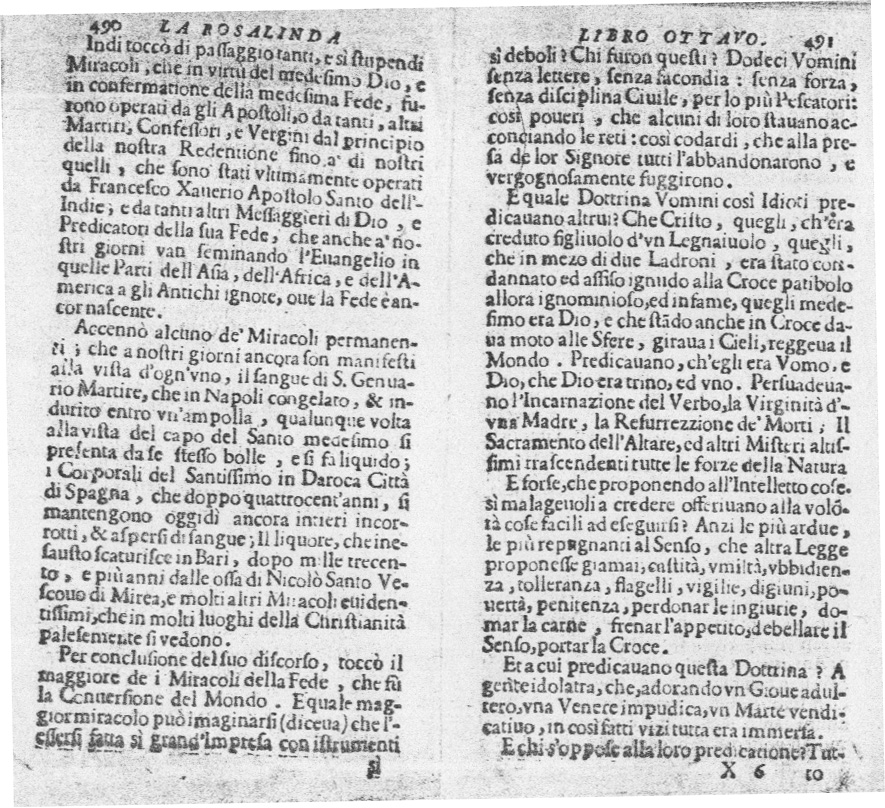 490 LA ROSALINDA
Indi toccò di passaggio tanti, e sì stupendi
Miracoli, che in virtù del medesimo Dio, e
in confermatione della medesima Fede, fu-
rono operati da gli Apostoli, o da tanti, altri
Martiri, Confessori, e Vergini dal principio
della nostra Redentione fino a' di nostri
quelli, che sono stati vltimamente operati
da Francesco Xauerio Apostolo Santo dell'-
Indie; e da tanti altri Messaggieri di Dio, e
Predicatori della sua Fede, che anche a' no-
stri giorni van seminando l'Euangelio in
quelle Parti dell'Asia, dell'Africa, e dell'A-
merica a gli Antichi ignote, oue la Fede è an-
cor nascente.
Accennò alcuno de' Miracoli permanen-
ti; che a nostri giorni ancora son manifesti
alla vista d'ogn'vno, il sangue di S. Genua-
rio Martire, che in Napoli congelato, & in-
durito entro vn'ampolla, qualunque volta
alla vista del capo del Santo medesimo si
presenta da se stesso bolle, e si fa liquido;
i Corporali del Santissimo in Daroca Città
di Spagna, che doppo quattrocent'anni, si
mantengono oggidì ancora intieri incor-
rotti, & aspersi di sangue; Il liquore, che ine-
sausto scaturisce in Bari, dopo mille trecen-
to, e più anni dalle ossa di Nicolò Santo Ve-
scouo di Mirea, e molti altri Miracoli euiden-
tissimi, che in molti luoghi della Christianità
palesemente si vedono.
Per conclusione del suo discorso, toccò il
maggiore de i Miracoli della Fede, che fù
la Conuersione del Mondo. E quale mag-
gior miracolo può imaginarsi (diceua) che l'-
essersi fatta sì grand'impresa con istrumenti
sì
LIBRO OTTAVO. 491
sì deboli? Chi furon questi? Dodeci Vomini
senza lettere, senza facondia: senza forza,
senza disciplina Ciuile, per lo più Pescatori:
così poueri, che alcuni di loro stauano ac-
conciando le reti: così codardi, che alla pre-
sa de lor Signore tutti l'abbandonarono, e
vergognosamente fuggirono.
E quale Dottrina Vomini così Idioti pre-
dicauano altrui? Che Cristo, quegli, ch'era
creduto figliuolo d'vn Legnaiuolo, quegli,
che in mezo di due Ladroni, era stato con-
dannato ed affiso ignudo alla Croce patibolo
allora ignominioso, ed infame, quegli mede-
simo era Dio, e che stãdo anche in Croce da-
ua moto alle Sfere, giraua i Cieli, reggeua il
Mondo. Predicauano, ch'egli era Vomo, e
Dio, che Dio era trino, ed vno. Persuadeua-
no l'Incarnazione del Verbo, la Virginità d'-
vna Madre, la Resurrezzione de' Morti; Il
Sacramento dell'Altare, ed altri Misteri altis-
simi trascendenti tutte le forze della Natura
E forse, che proponendo all'Intelletto cose.
sì malageuoli a credere offeriuano alla volõ-
tà cose facili ad eseguirsi? Anzi le più ardue,
le più repugnanti al Senso, che altra Legge
proponesse giamai; castità, vmiltà, vbbidien-
za, tolleranza, flagelli, vigilie, digiuni, po-
uertà, penitenza, perdonar le ingiurie, do-
mar la carne, frenar l'appetito, debellare il
Senso, portar la Croce.
Et a cui predicauano questa Dottrina? A
gente idolatra, che, adorando vn Gioue adul-
tero, vna Venere impudica, vn Marte vendi-
catiuo, in così fatti vizi tutta era immersa.
E chi s'oppose alla loro predicatione? Tut-
X 6 to